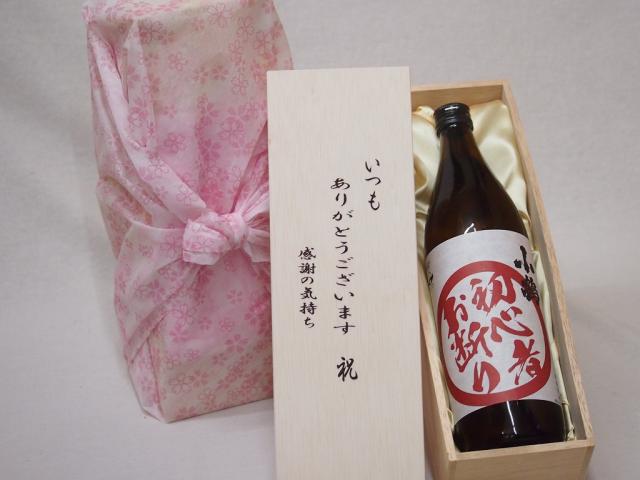 いつも
ありがとうございます 祝
感謝の気持ち
小鶴
初心者
お断り